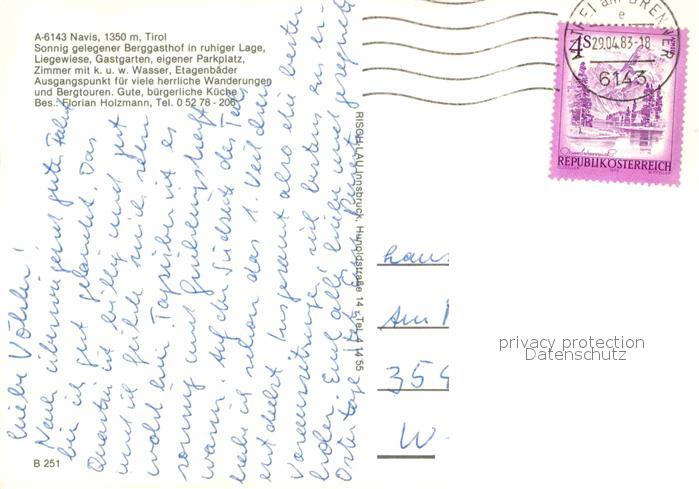 A-6143 Navis, 1350 m, Tirol
Sonnig gelegener Berggasthof in ruhiger Lage,
Liegewiese, Gastgarten, eigener Parkplatz,
Zimmer mit k. u. w. Wasser, Etagenbäder
Ausgangspunkt für viele herrliche Wanderungen
und Bergtouren. Gute, bürgerliche Küche
Bes.: Florian Holzmann, Tel. 0 52 78 - 206
Liebe Völkler!
Nach überwiegend guter Fahrt
bin ich gut gelandet. Das
Quartier ist billig und gut
und ich fühle mich sehr
wohl hier. Tagsüber ist es
sonnig und frühlingshaft
warm. Auf der Südseite des Tals
habe ich schon das 1. Veilchen
entdeckt. Insgesamt also die besten
Voraussetzungen, sich bestens zu er-
holen. Euch allen liebe und gesegnete
Ostertage
RISCH-LAU Innsbruck, Hunoldstraße 14 - Tel. 4 14 55
B 251
BRENNER
e
29.04.83-18
6143
4 S
REPUBLIK ÖSTERREICH
Am
354
W
privacy protection
Datenschutz